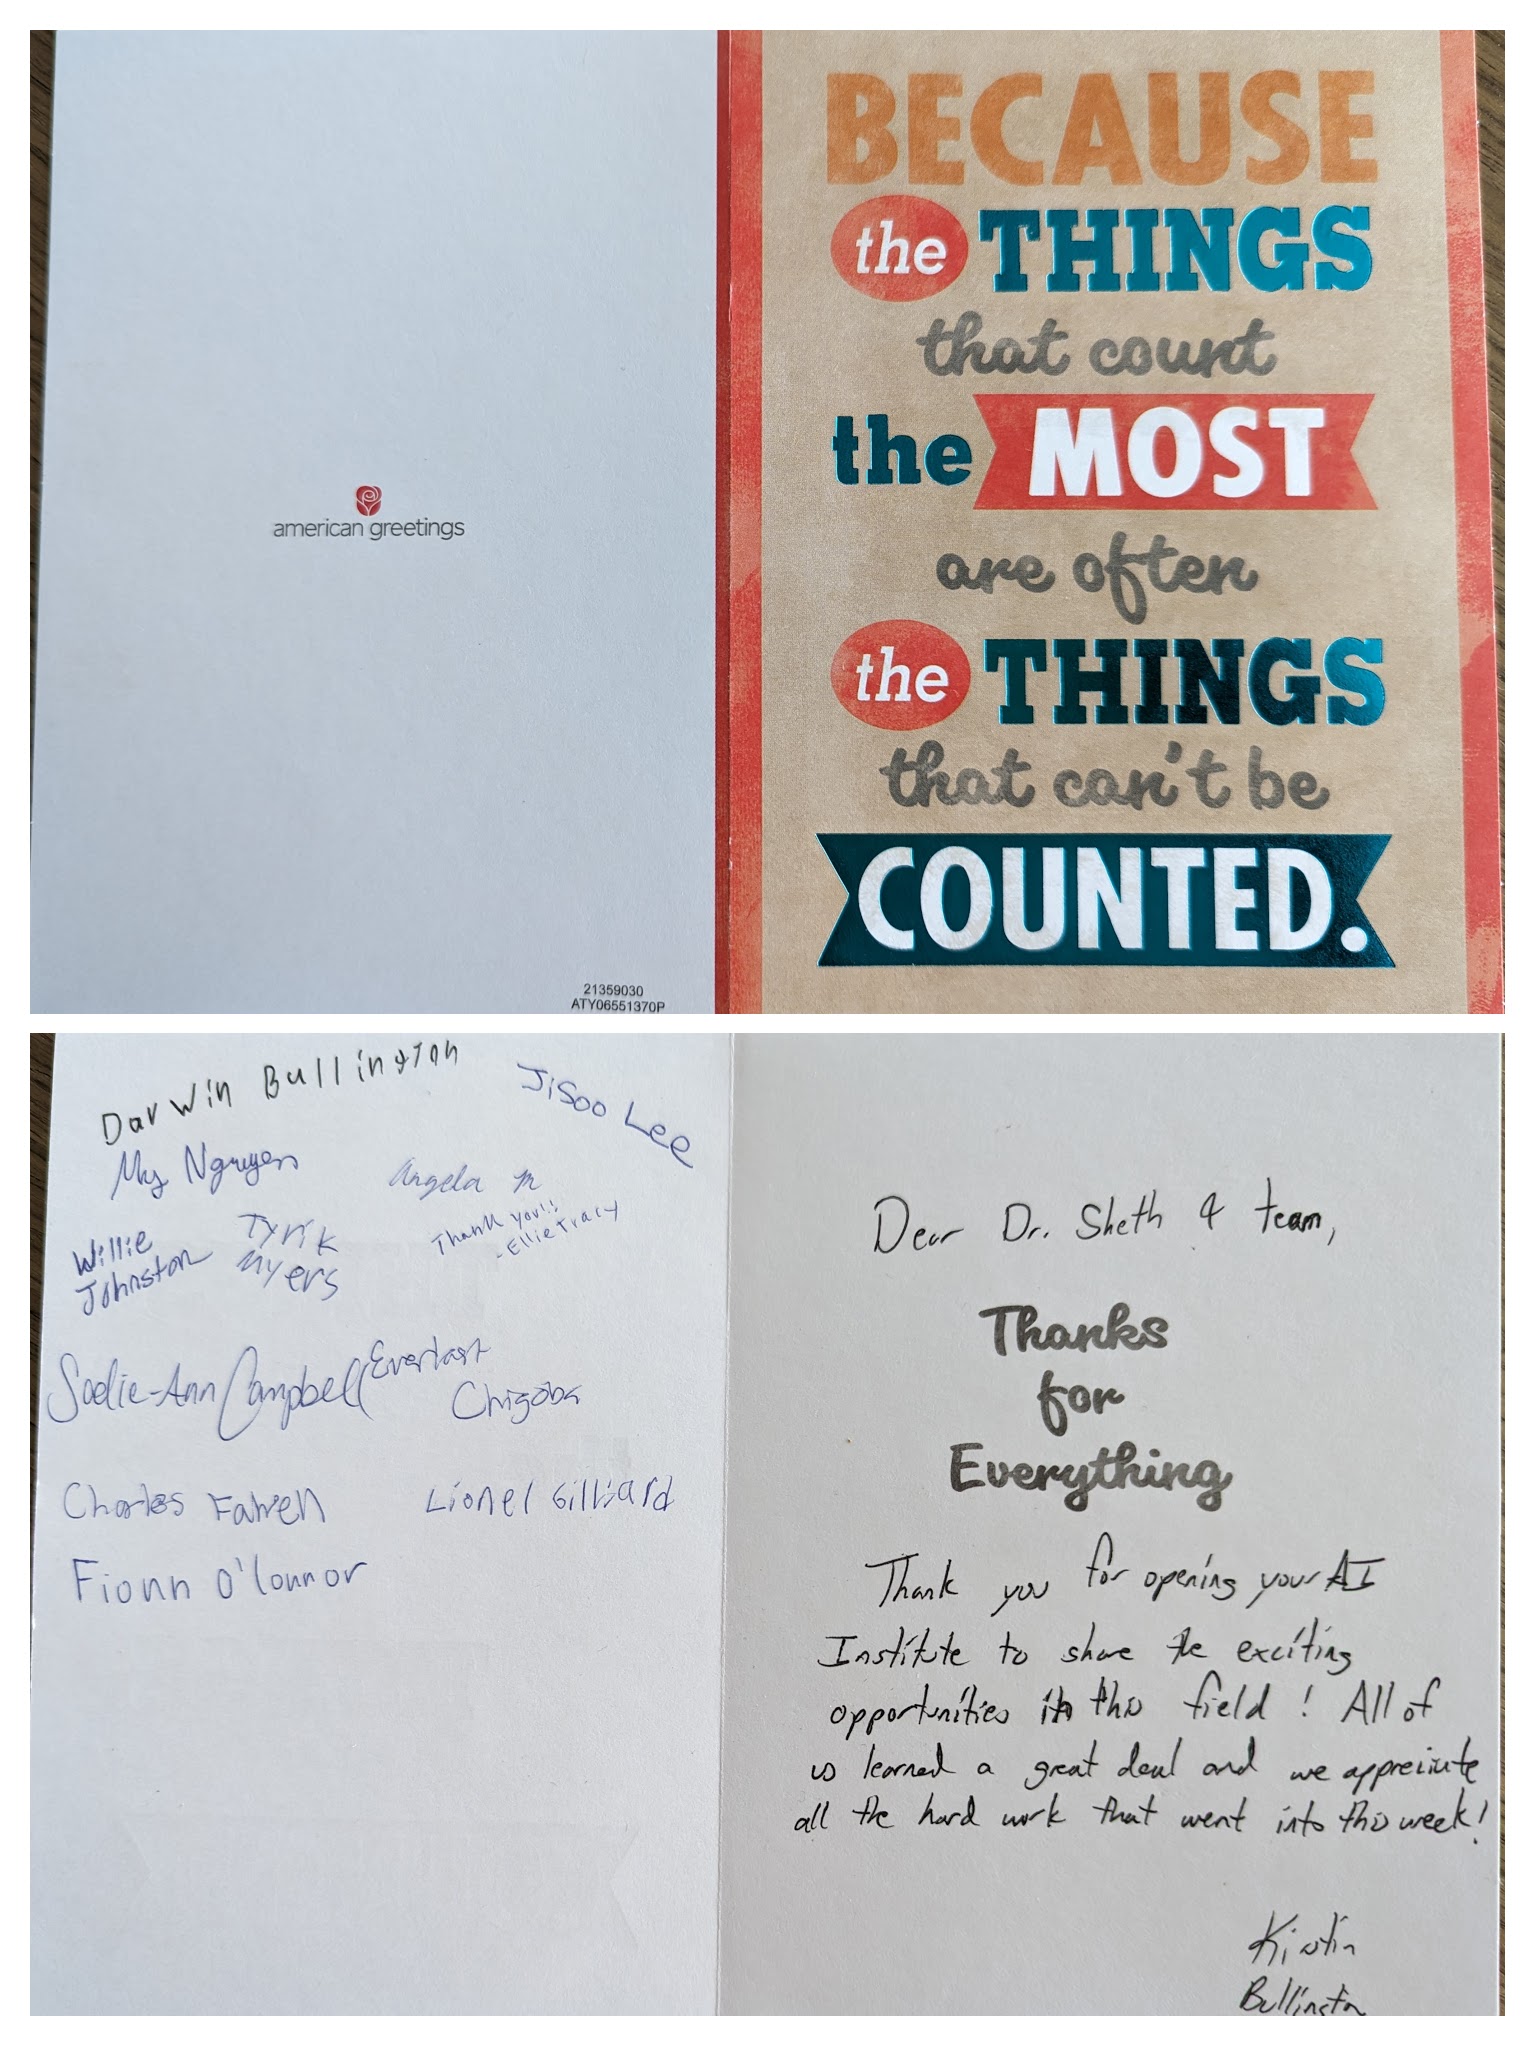 american greetings
21359030
ATY06551370P
BECAUSE
the THINGS
that count
the MOST
are often
the THINGS
that can't be
COUNTED.
Darwin Bullington
JiSoo Lee
My Nguyen
Angela M
Willie
Johnston
Tyrik
Myers
Thank you!!
- Ellie Tracy
Sadie-Ann Campbell
Everlast
Chigoba
Charles
Lionel Gilliard
Fionn O'Connor
Dear Dr. Sheth & team,
Thanks
for
Everything
Thank you for opening your AI
Institute to share the exciting
opportunities in this field! All of
us learned a great deal and we appreciate
all the hard work that went into this week!
Kirstin
Bullington